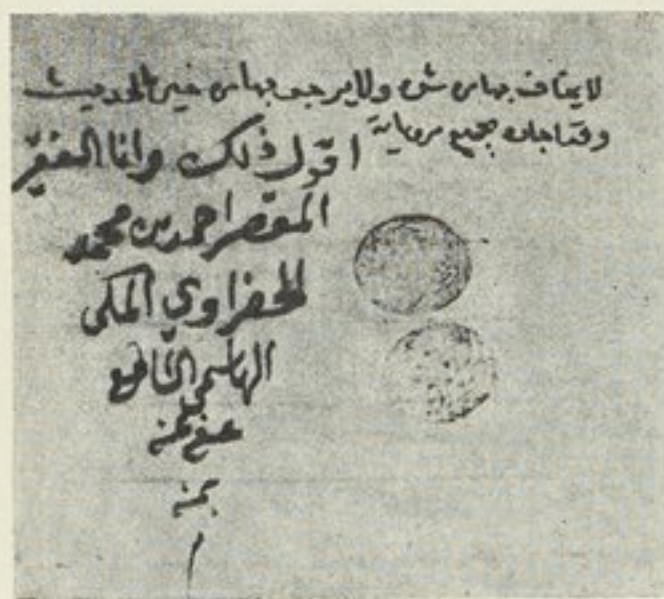 لا يخاف بهاس ش ولا يرجو بهاس خير الحديث
وقد اجاز بجميع مروياته
اقول ذلك وانا الفقير
المقصر احمد بن محمد
الحضراوي المكي
الهاشمي الشافعي
عفي عنه
بمنه